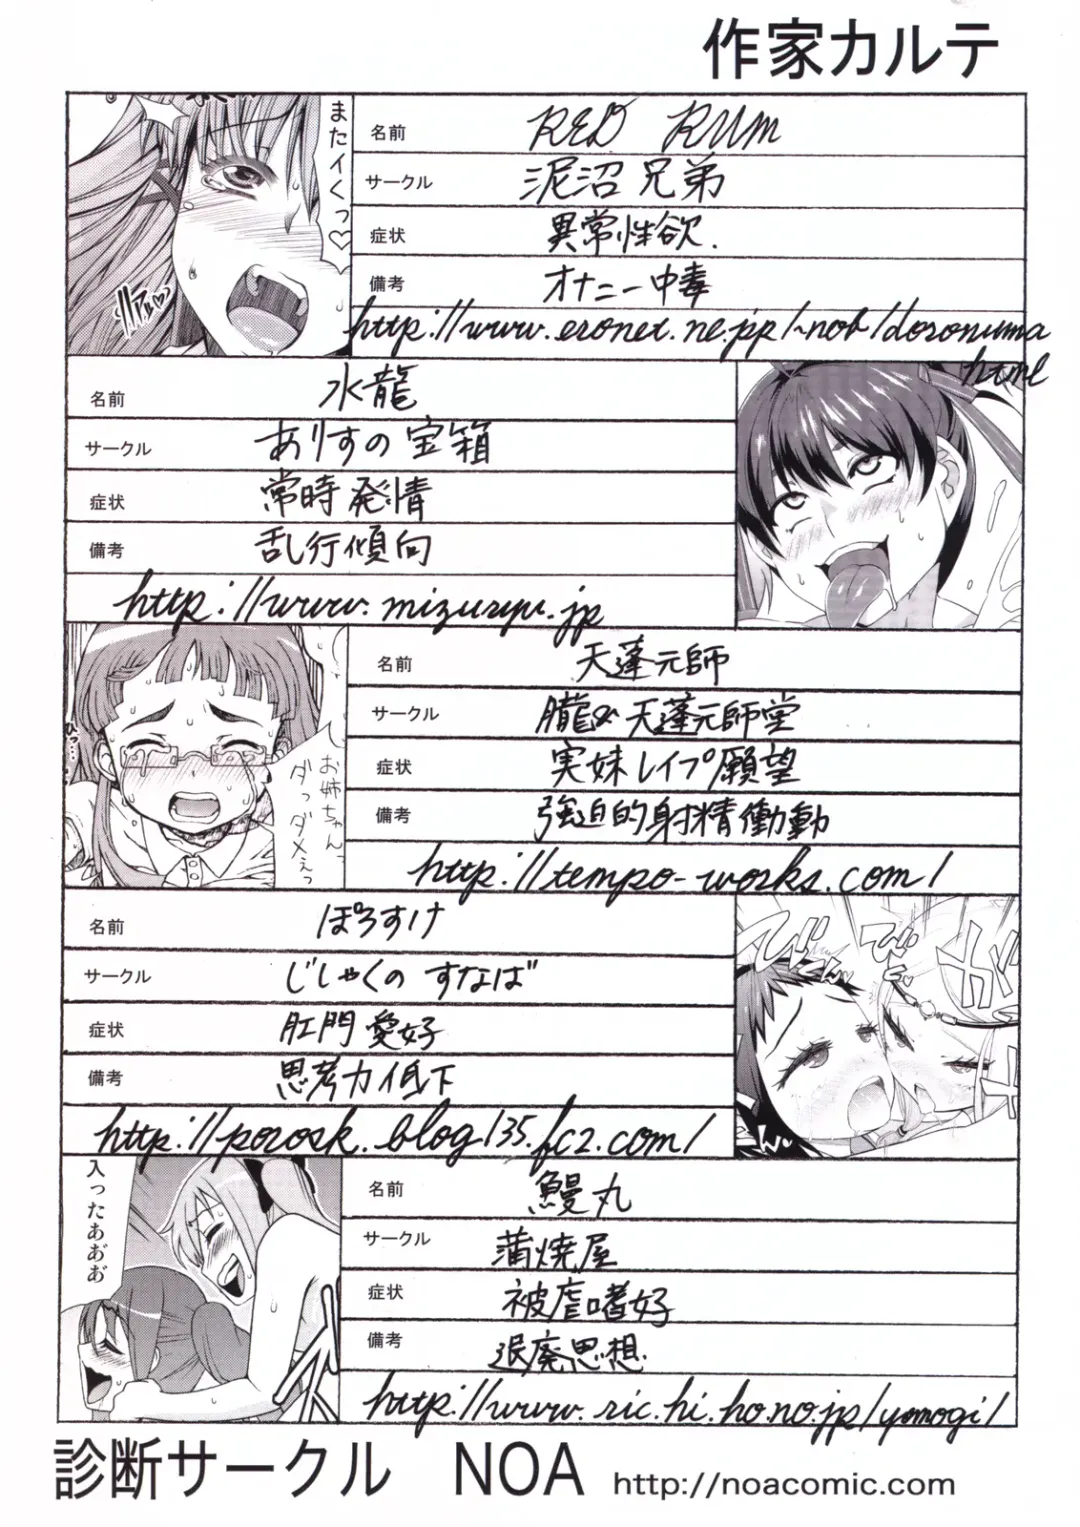 作家カルテ
またイくっ♡
名前 RED RUM
サークル 泥沼兄弟
症状 異常性欲.
備考 オナニー中毒
http://www.eronet.ne.jp/~nob/doronuma
html
名前 水龍
サークル ありすの宝箱
症状 常時発情
備考 乱行傾向
http://www.mizuryu.jp
お姉ちゃんっ
ダっダメぇっ
名前 天蓬元師
サークル 朧&天蓬元師堂
症状 実妹レイプ願望
備考 強迫的射精働動
http://tempo-works.com/
名前 ぽろすけ
サークル じしゃくのすなば
症状 肛門愛好
備考 思考力低下
http://porosk.blog135.fc2.com/
入ったあぉぉ
名前 鰻丸
サークル 蒲焼屋
症状 被虐嗜好
備考 退廃思想
http://www.ric.hi.ho.no.jp/yomogi/
診断サークル NOA http://noacomic.com